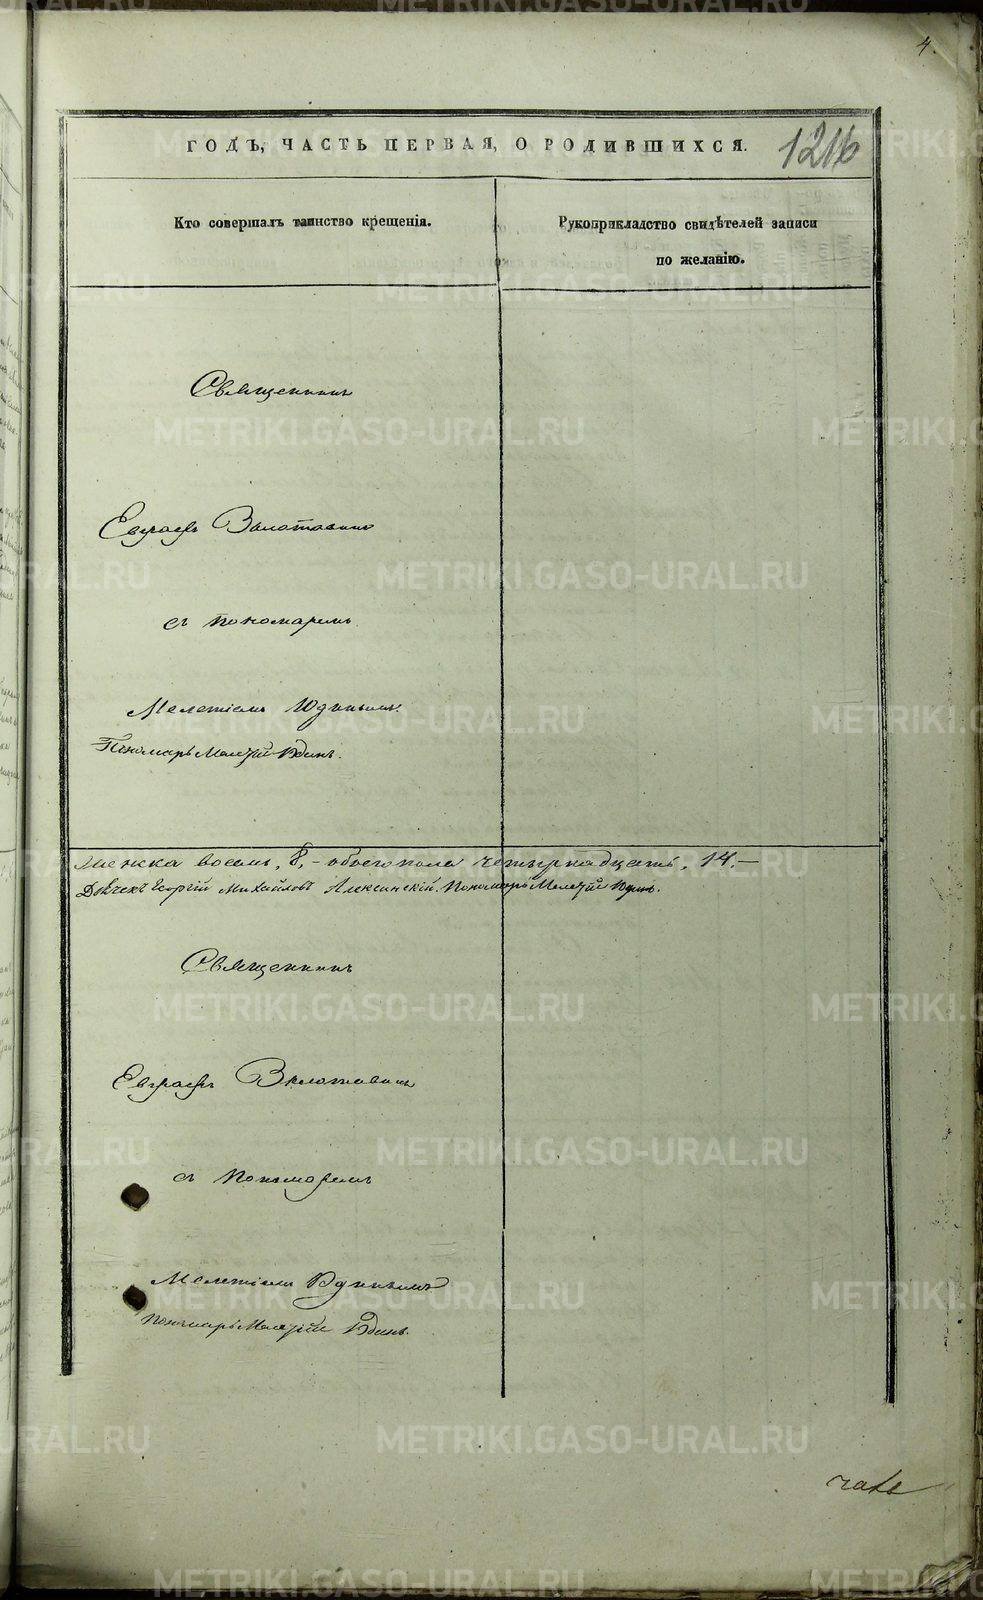 4.
ГОДЪ, ЧАСТЬ ПЕРВАЯ, О РОДИВШИХСЯ.
1216
Кто совершалъ таинство крещенія.
Рукоприкладство свидѣтелей записи
по желанію.
Священникъ
Евграфъ
съ пономаремъ
Мелетіемъ Юдинымъ
Пономарь Мелетій Юдинъ.
восемь, 8, – обоего пола четырнадцать, 14. –
Георгій Михайловъ Алексинскій. Пономарь Мелетій Юдинъ.
Священникъ
Евграфъ
съ Пономаремъ
Мелетіемъ Юдинымъ
Пономарь Мелетій Юдинъ.
METRIKI.GASO-URAL.RU